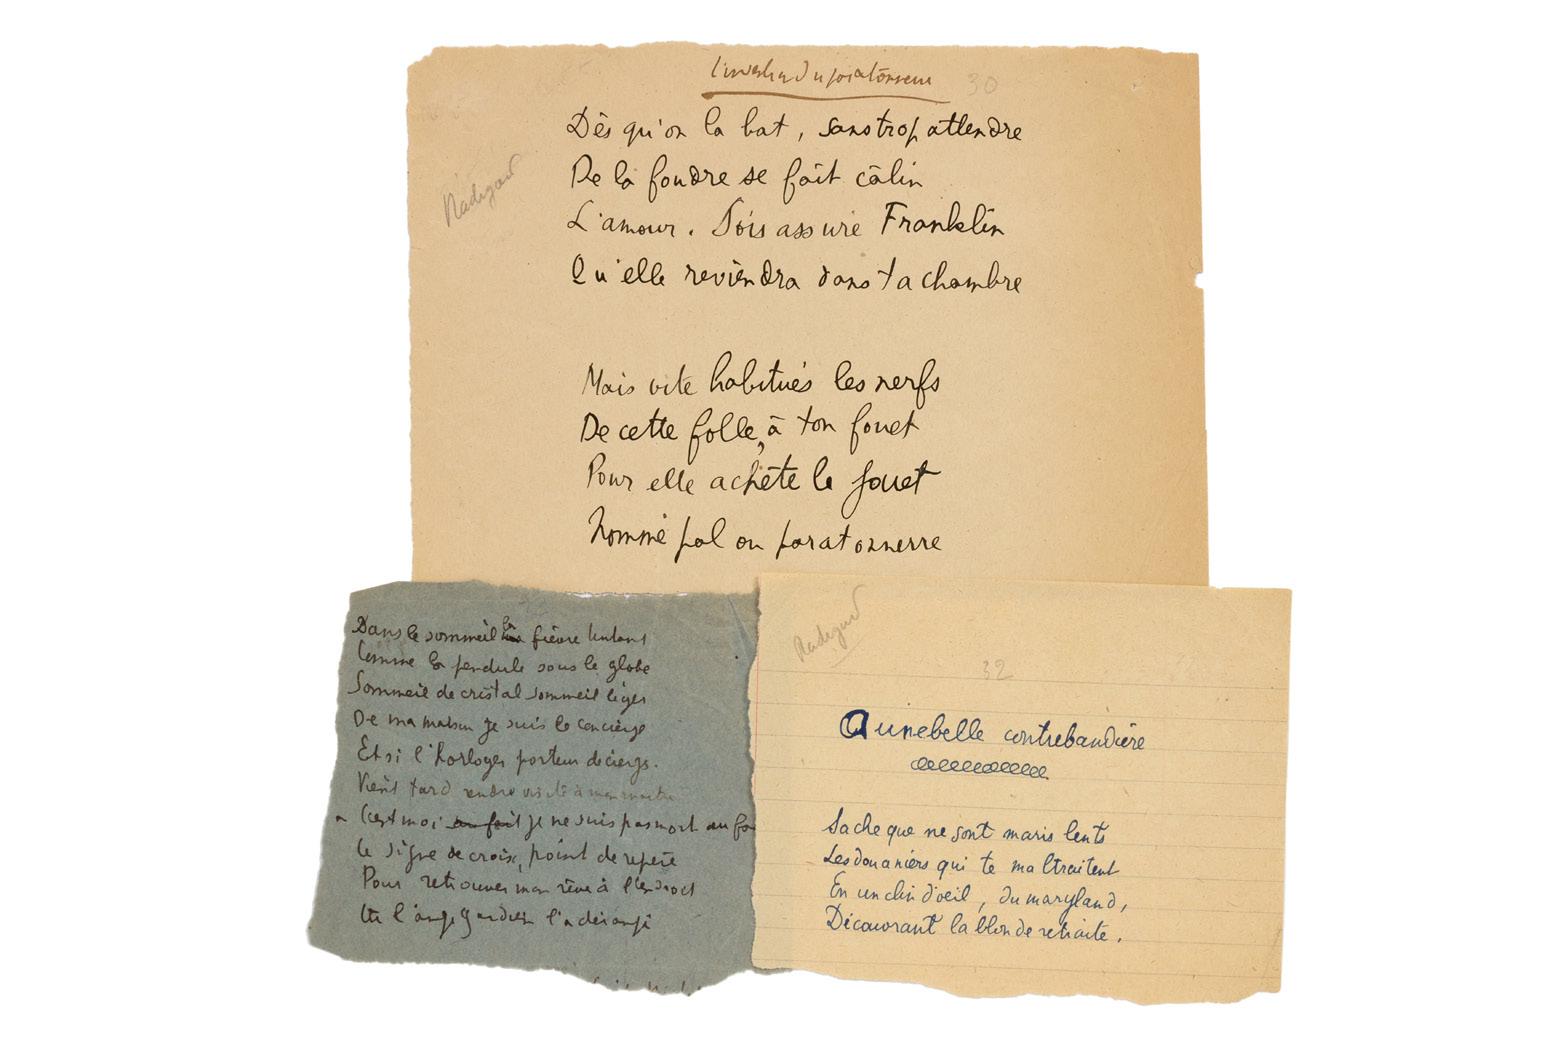 l'inventeur du paratonnerre
30
Radiguet
Dès qu'on la bat, sans trop attendre
De la foudre se fait câlin
L'amour. Sois assuré Franklin
Qu'elle reviendra dans ta chambre
Mais vite habitués les nerfs
De cette folle, à ton fouet
Pour elle achète le jouet
Nommé pal ou paratonnerre
Dans le sommeil la fièvre
Comme la pendule sous le globe
Sommeil de cristal sommeil léger
De ma maison je suis le concierge
Et si l'horloger porteur de cierge.
Vient tard rendre visite à mon maître
C'est moi au fait je ne suis pas mort au fo
Le signe de croix, point de repère
Pour retrouver mon rêve à l'endroit
Où l'ange gardien l'a dérangé
Radiguet
32
A une belle contrebandière
Sache que ne sont maris lents
Les douaniers qui te maltraitent
En un clin d'oeil, du maryland,
Découvrant la blonde retraite.